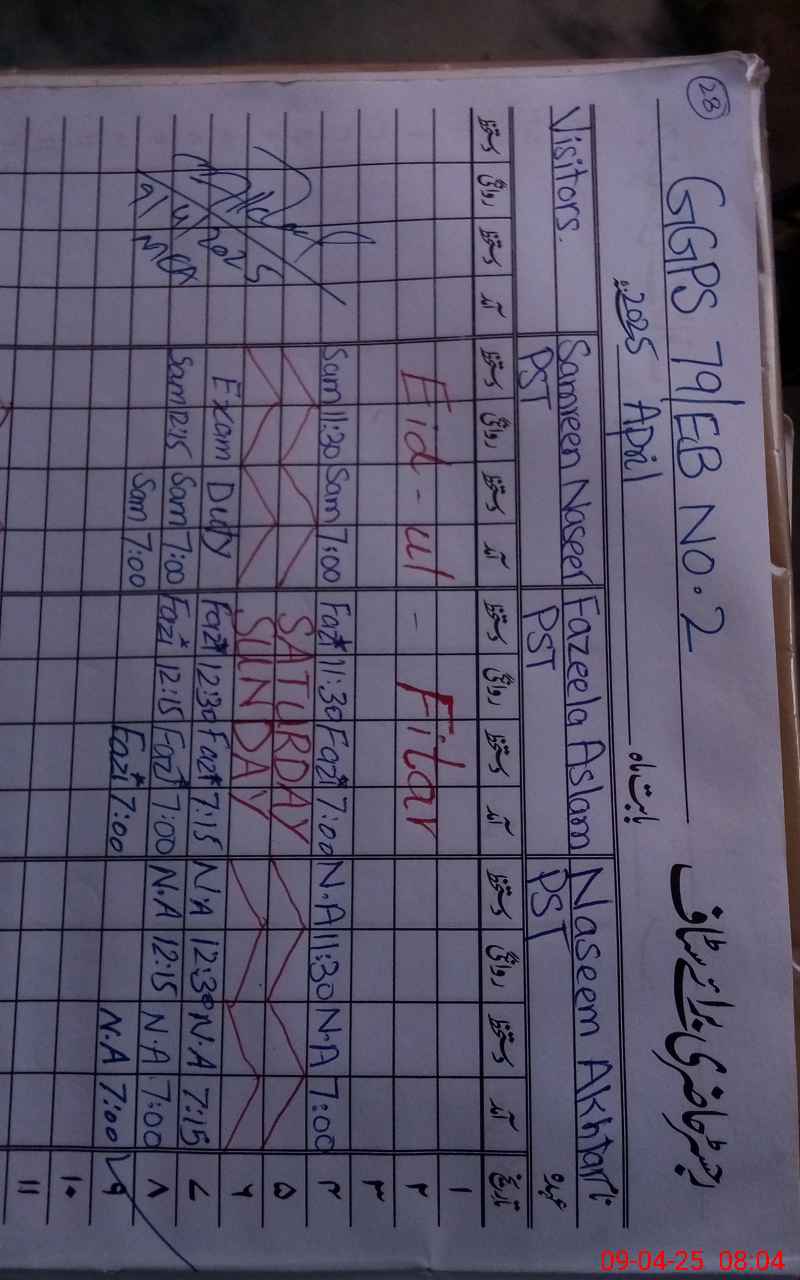 28
GGPS 79/EB No.2 رجسٹر حاضری برائے سٹاف
بابت ماہ April 2025ء
Visitors. Samreen Naseer Fazeela Aslam Naseem Akhtar نام
PST PST PST عہدہ
دستخط روانگی دستخط آمد دستخط روانگی دستخط آمد دستخط روانگی دستخط آمد دستخط روانگی دستخط آمد تاریخ
۱
Eid-ul-Fitar ۲
۳
Sam 11:30 Sam 7:00 Faz* 11:30 Faz* 7:00 N.A 11:30 N.A 7:00 ۴
SATURDAY ۵
SUNDAY ۶
Exam Duty Faz* 12:30 Faz* 7:15 N.A 12:30 N.A 7:15 ۷
Sam 12:15 Sam 7:00 Faz* 12:15 Faz* 7:00 N.A 12:15 N.A 7:00 ۸
Sam 7:00 Faz* 7:00 N.A 7:00 ۹
۱۰
۱۱
09-04-25 08:04